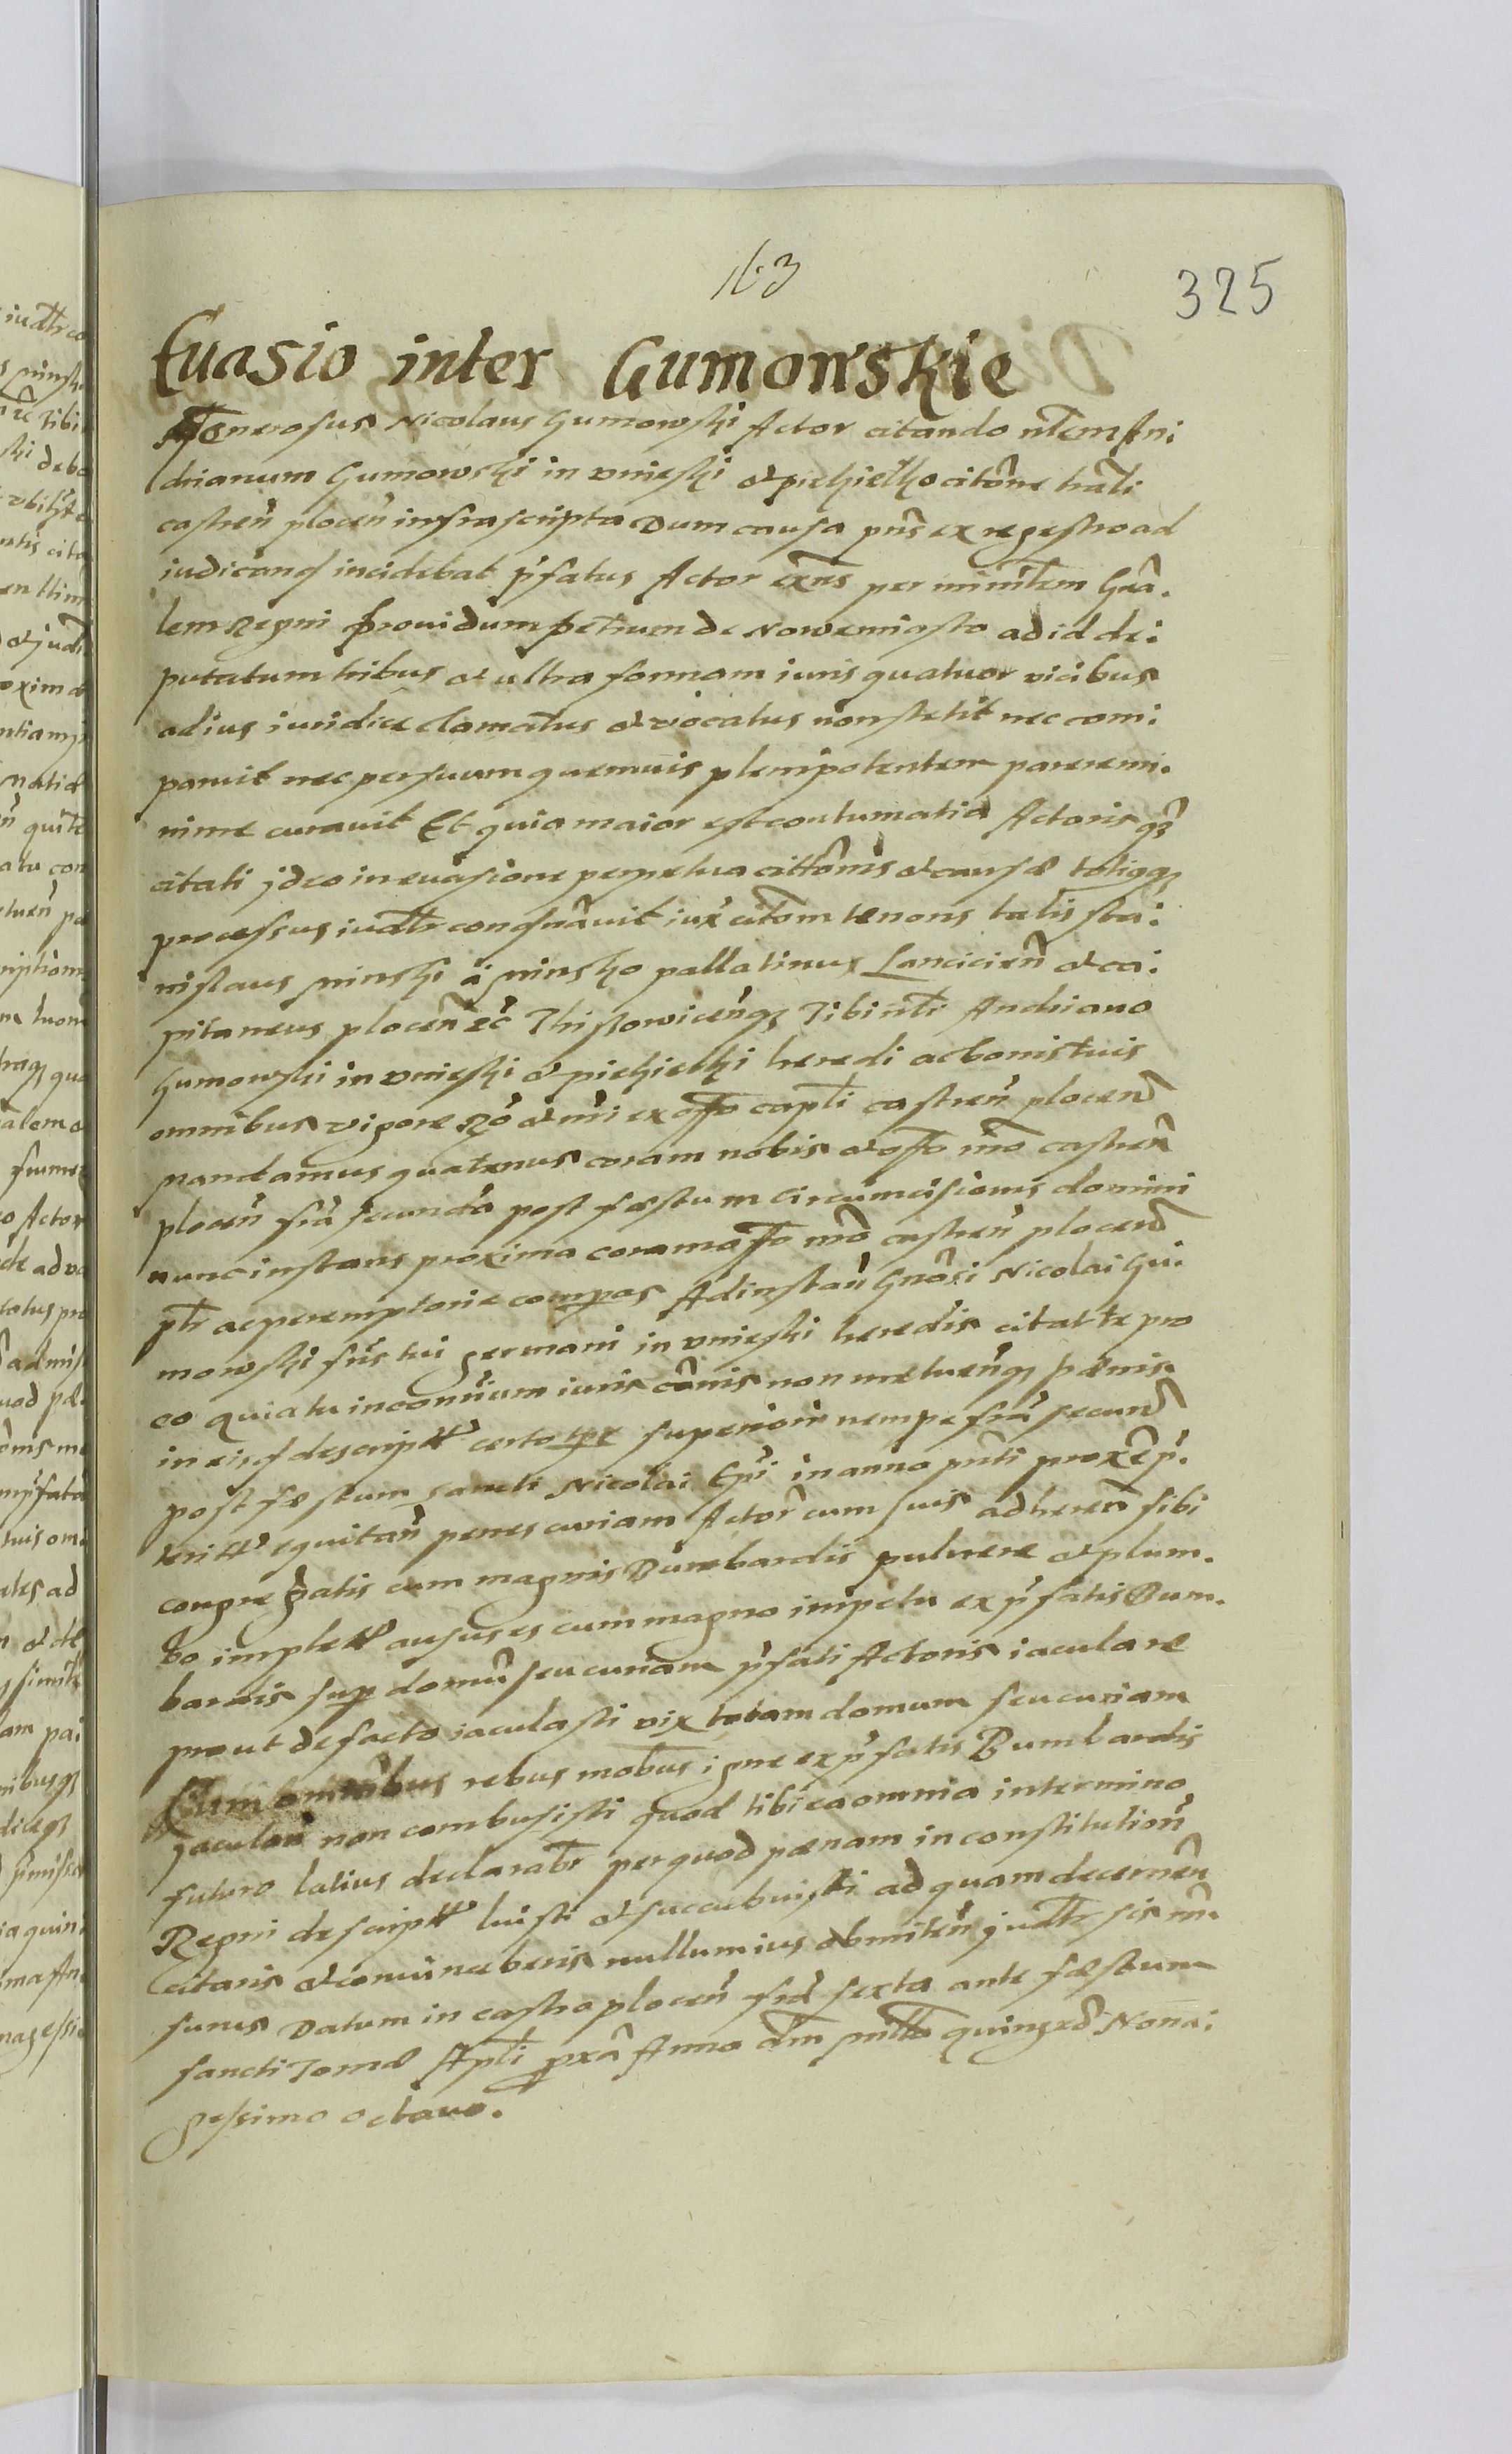 325
Euasio inter Gumowskie
Generosus Nicolaus Gumowski Actor citando nłem An:
drianum Gumowski in vnieski et citone
castren plocen infrascripta Dum causa pns ex regestro ad
iudicand incidebat pfatus Actor exns per minrlem Gnā.
lem Regni prouidum petrum de Nowemiasto ad id de:
putatum tribus et ultra formam iuris quatuor vicibus
ad ius iuridice clamatus et vocatus non stetit nec com:
paruit nec per suum quemuis plenipotentem parere mi.
nime curauit Et quia maior est contumatia Actoris qz
citati jdeo in euasione perpetua cittonis et causæ totiqz
processus iudtr condnauit iux citom tenoris talis Sta:
nislaus minski a minsko pallatinus Lancicien et ca:
pitaneus plocen etc Tibi nłi Andriano
Gumowski in vnieski et heredi ac bonis tuis
omnibus vigore Ro et nri ex offo capłi castren plocen
mandamus quatenus coram nobis et offo nro castren
plocen fria secunda post fæstum circumcisionis domini
nunc instans proxima coram offo nro castren plocen
płr ac peremptorie compas Ad instan Gnosi Nicolai Gu.
mowski frīs tui germani in vnieski heredis citat te pro
eo quia tu in conniuum iuris cōnis non metuenqz pænis
in eisd descriptt certo tpe superiori nempe fria secund
post fæstum sancti Nicolai Epi in anno pnti prox p.
teritt equitan penes curiam Actor cum suis adheren sibi
congregatis cum magnis Bumbardis puluere et plum.
bo implett ausus es cum magno impetu ex pfatis Bum.
bardis sup domū seu curiam pfati Actoris iaculare
prout de facto iaculasti vix totam domum seu curiam
cum omnibus rebus mobus igne ex pfatis Bumbardis
jaculan non combusisti quod tibi ea omnia in termino
futuro latius declarabr per quod pænam in constitution
Regni descriptt luisti et succubuisti ad quam decernen
citaris et conuinceberis nullum ius obmiten judtr sis rn.
surus Datum in castro plocen fria sexta ante fæstum
sancti Tomæ Apłi pxa Anno dni miłło quingmo Nona:
gessimo octauo.